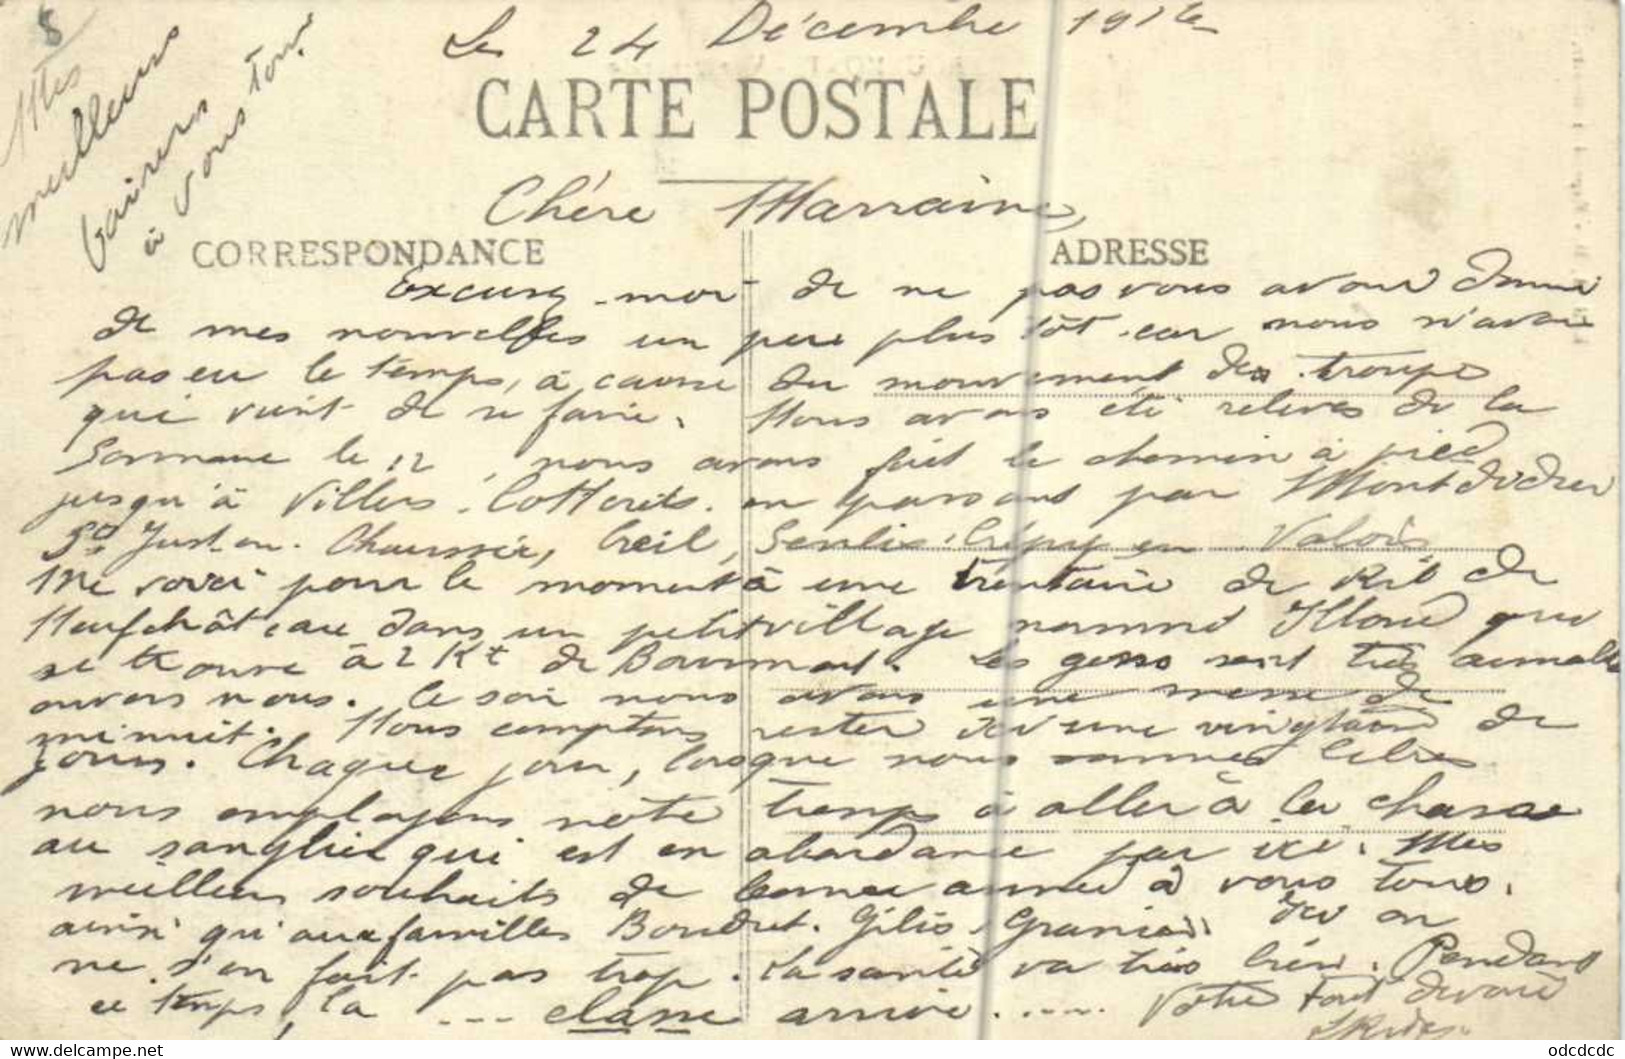 8
Mes
meilleurs
baisers
à vous tous
Le 24 Décembre
CARTE POSTALE
Chére Marraine,
CORRESPONDANCE
ADRESSE
Excusez-moi de ne pas vous avoir donné
de mes nouvelles un peu plus tôt car nous n'avons
pas eu le temps, à cause du mouvement des troupes
qui vient de se faire. Nous avons été relevés de la
Somme le 12, nous avons fait le chemin à pied
jusqu'à Villers-Cotterets. en passant par Montdidier
St Just-en-Chaussée, Creil, Senlis, Crépy en Valois
Me voici pour le moment à une trentaine de Kil de
Neufchâteau dans un petit village nommé Illoud qui
se trouve à 2 Kt de Bourmont. Les gens sont très aimables
envers nous. Ce soir nous avons une messe de
minuit. Nous comptons rester ici une vingtaine de
jours. Chaque jour, lorsque nous sommes libres
nous employons notre temps à aller à la chasse
au sanglier qui est en abondance par ici. Mes
meilleurs souhaits de bonne année à vous tous.
ainsi qu'aux familles Boudret. Gilis, Ici on
ne s'en fait pas trop. La santé va très bien. Pendant
ce temps, la ... classe arrive ..... Votre tout dévoué
odcdcdc
www.delcampe.net